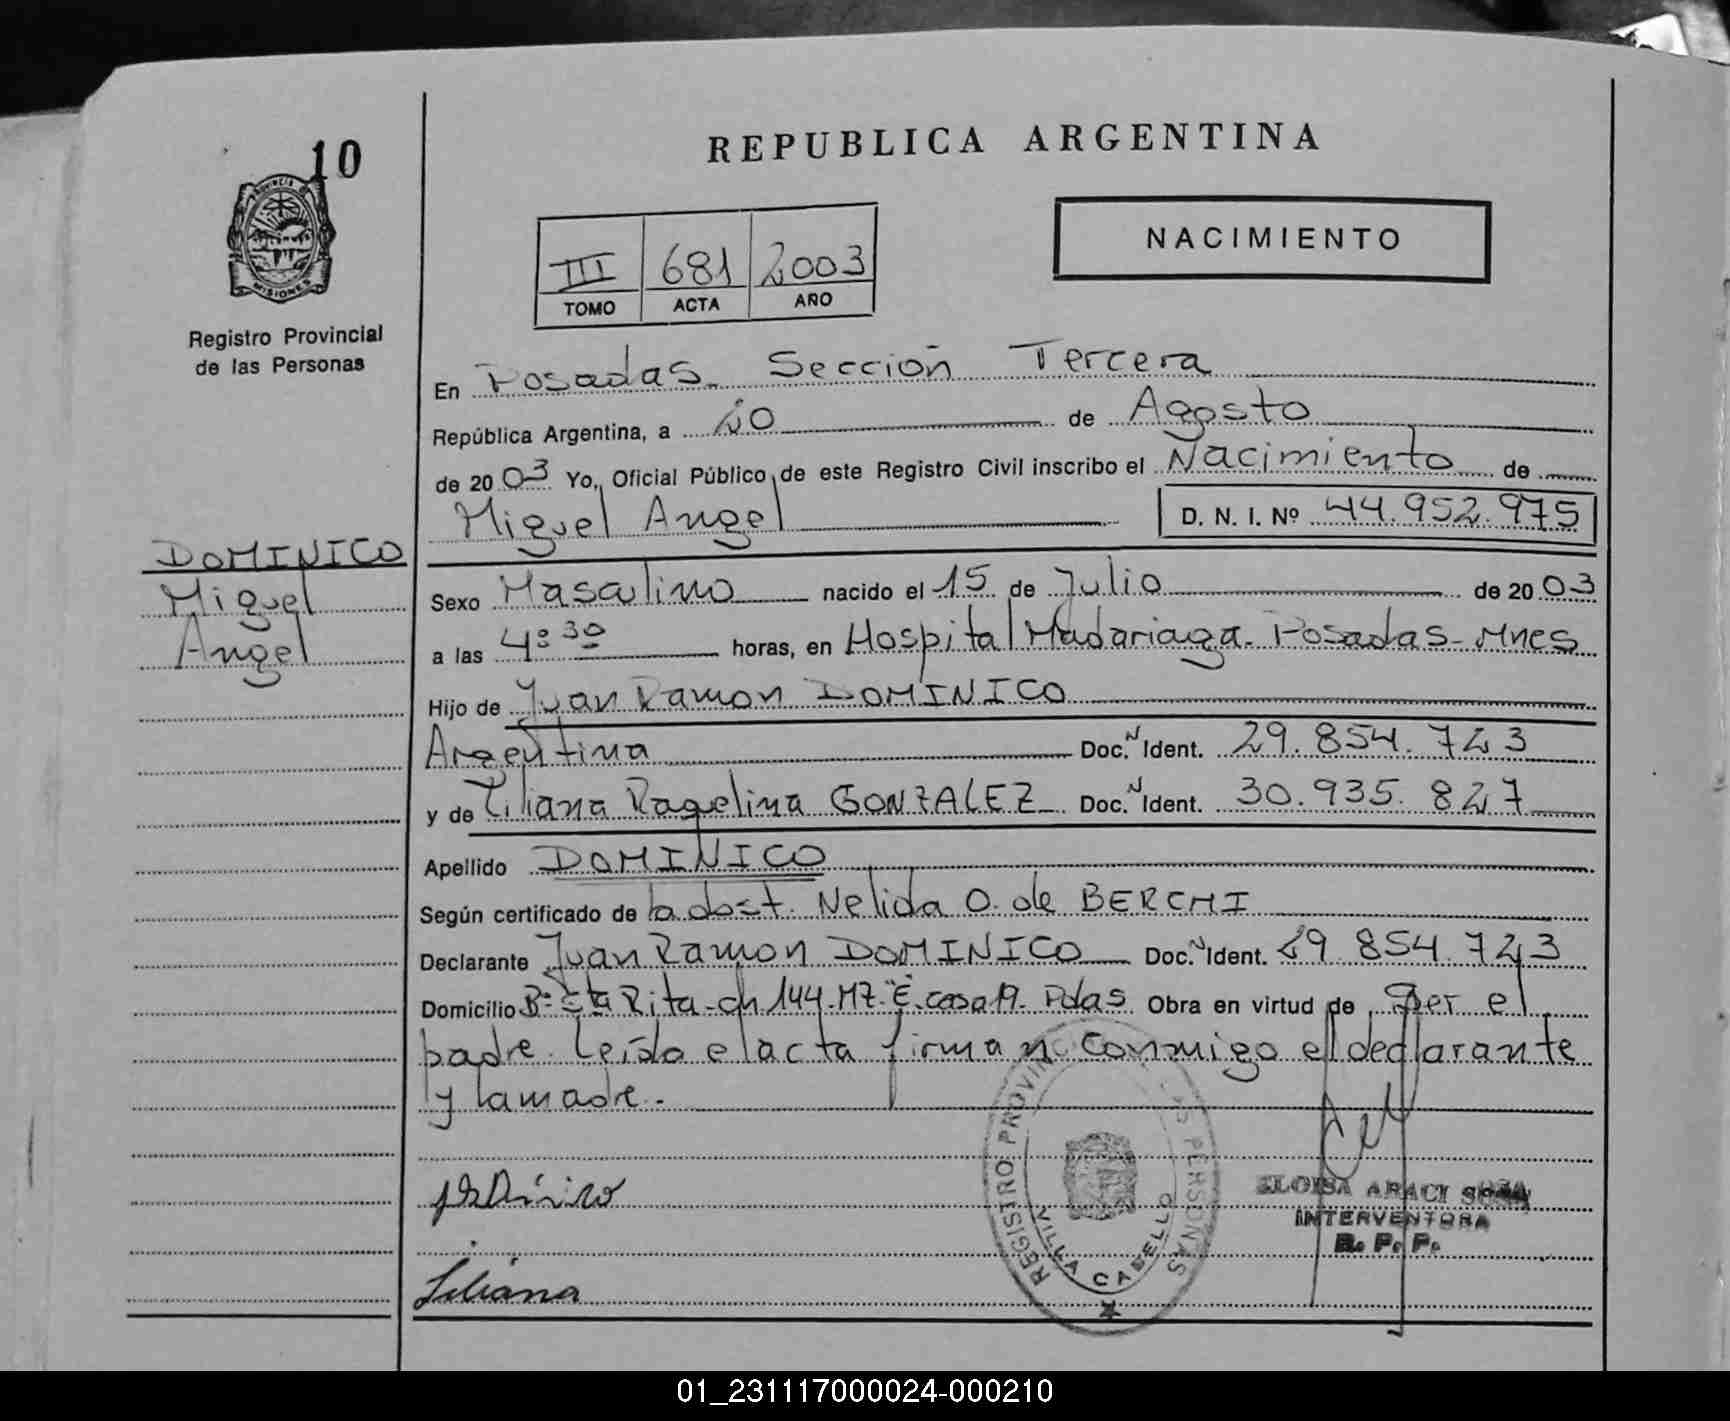 10
PROVINCIA DE
MISIONES
Registro Provincial
de las Personas
DOMINICO
Miguel
Angel
REPUBLICA ARGENTINA
NACIMIENTO
III 681 2003
TOMO ACTA AÑO
En Posadas. Sección Tercera
República Argentina, a 20 de Agosto
de 2003 Yo, Oficial Público de este Registro Civil inscribo el Nacimiento de
Miguel Angel D. N. I. Nº 44.952.975
Sexo Masculino nacido el 15 de Julio de 2003
a las 4:30 horas, en Hospital Madariaga. Posadas - Mnes
Hijo de Juan Ramon DOMINICO
Argentina Doc. N Ident. 29.854.723
y de Liliana Raquelina GONZALEZ Doc. N Ident. 30.935.827
Apellido DOMINICO
Según certificado de la obst. Nelida O. de BERCHI
Declarante Juan Ramon DOMINICO Doc. N Ident. 29.854.723
Domicilio Bº Sta Rita - ch 144. MZ. "E. casa 19. Pdas Obra en virtud de Ser el
padre. Leída el acta firman conmigo el declarante
y la madre.
REGISTRO PROVINCIAL DE LAS PERSONAS
VILLA CABELLO
ELOISA ARACI SOSA
INTERVENTORA
R. P. P.
Liliana
01_231117000024-000210